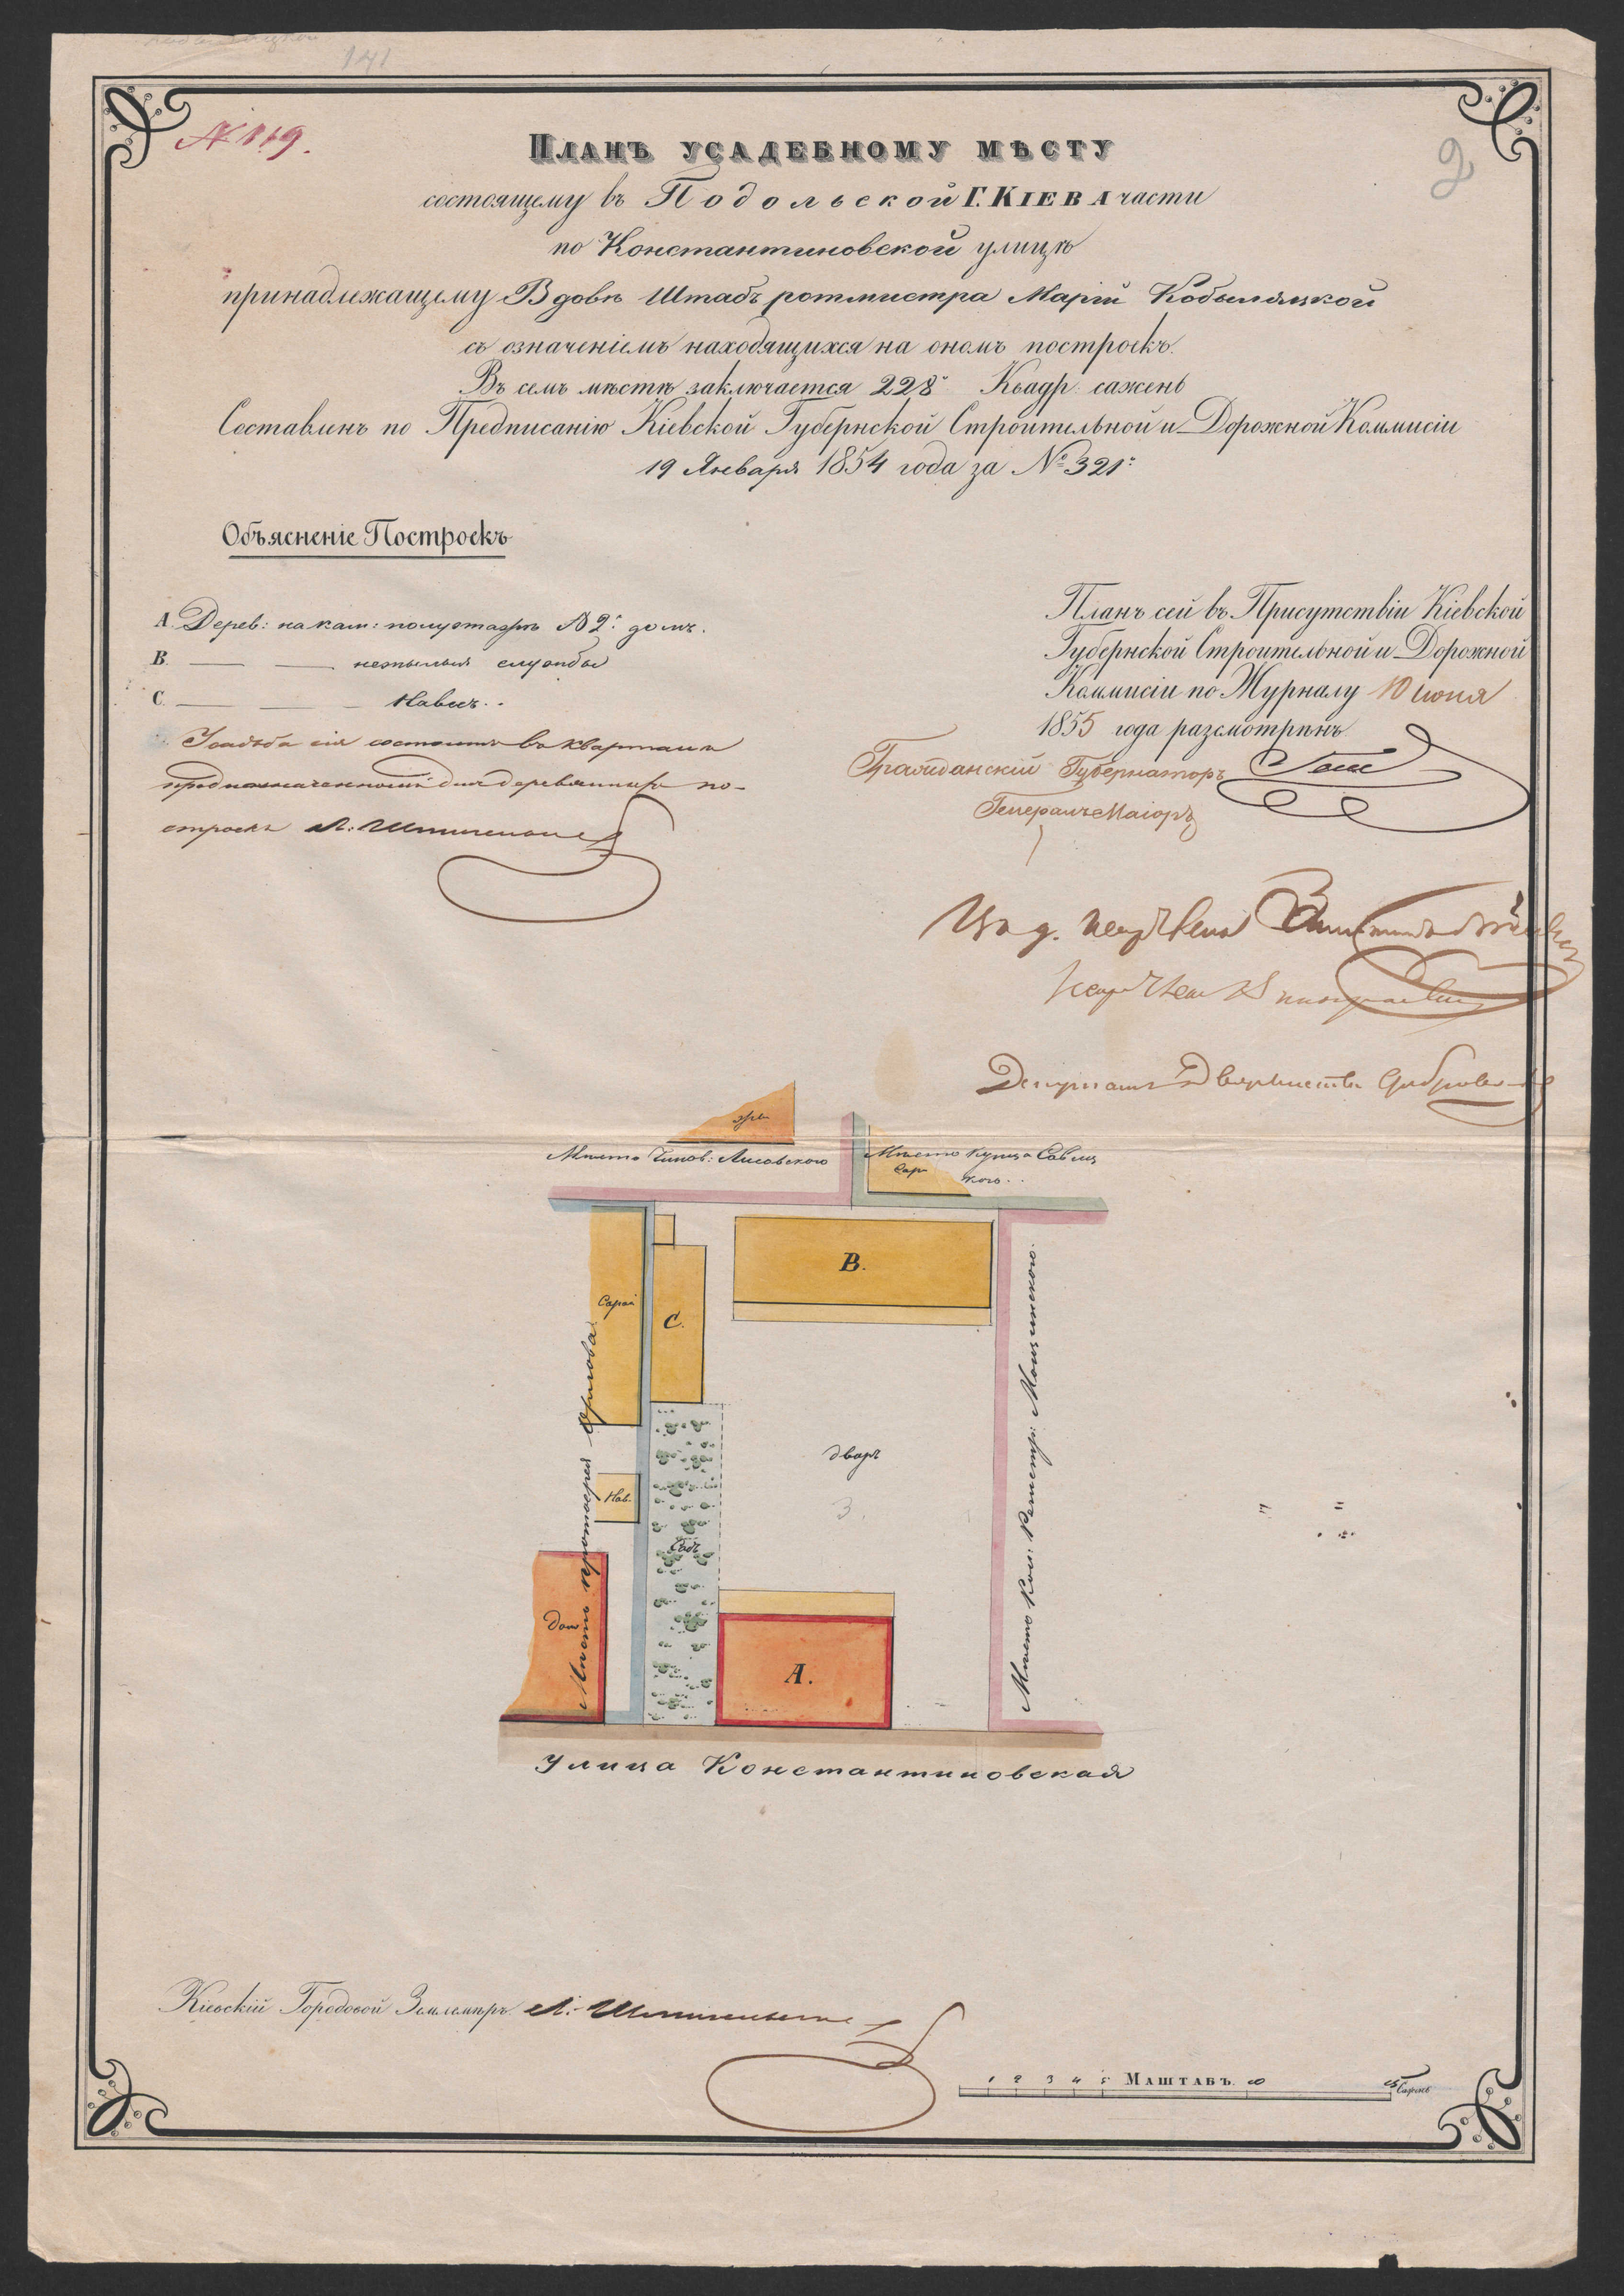 141
№ 119.
2
Планъ усадебному мѣсту
состоящему въ Подольской Г. Кіева части
по Константиновской улицѣ
принадлежащему Вдовѣ Штабъ ротмистра Маріи Кобыляцкой
съ означеніемъ находящихся на ономъ построекъ.
Въ семъ мѣстѣ заключается 228 Квадр. сажень
Составленъ по Предписанію Кіевской Губернской Строительной и Дорожной Коммисіи
19 Января 1854 года за № 321
Объясненіе Построекъ
A. Дерев: на кам: полуэтажѣ № 2 домъ.
B. — — нежилыя службы
C. — — Навесъ.
Усадьба сія состоитъ въ кварталѣ
предназначенномъ для деревянныхъ по-
строекъ Л:
Планъ сей въ Присутствіи Кіевской
Губернской Строительной и Дорожной
Коммисіи по Журналу 10 іюня
1855 года разсмотрѣнъ
Гражданскій Губернаторъ
Генералъ Маіоръ
Депутатъ Дворянства
Мѣсто Чинов: Лисовскаго
Мѣсто купца Савиц
Сар
кого.
B.
Сарай
C.
Мѣсто протоерея Орлова
Мѣсто Кол: Регистр: Мощинского.
дворъ
3.
Нав.
Садъ
Домъ
A.
Улица Константиновская
Кіевскій Городовой Землемѣръ Л:
1 2 3 4 5 Маштабъ. 10 15 Сажень